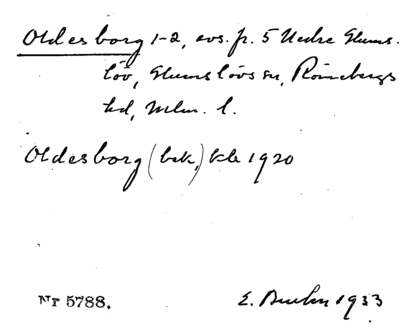 Oldesborg 1-2, avs. fr. 5 Nedre Glums-
löv, Glumslövs sn, Rönnebergs
hd, Mlm. l.
Oldesborg (bek.) kb 1920
Nr 5788.
E. 1933